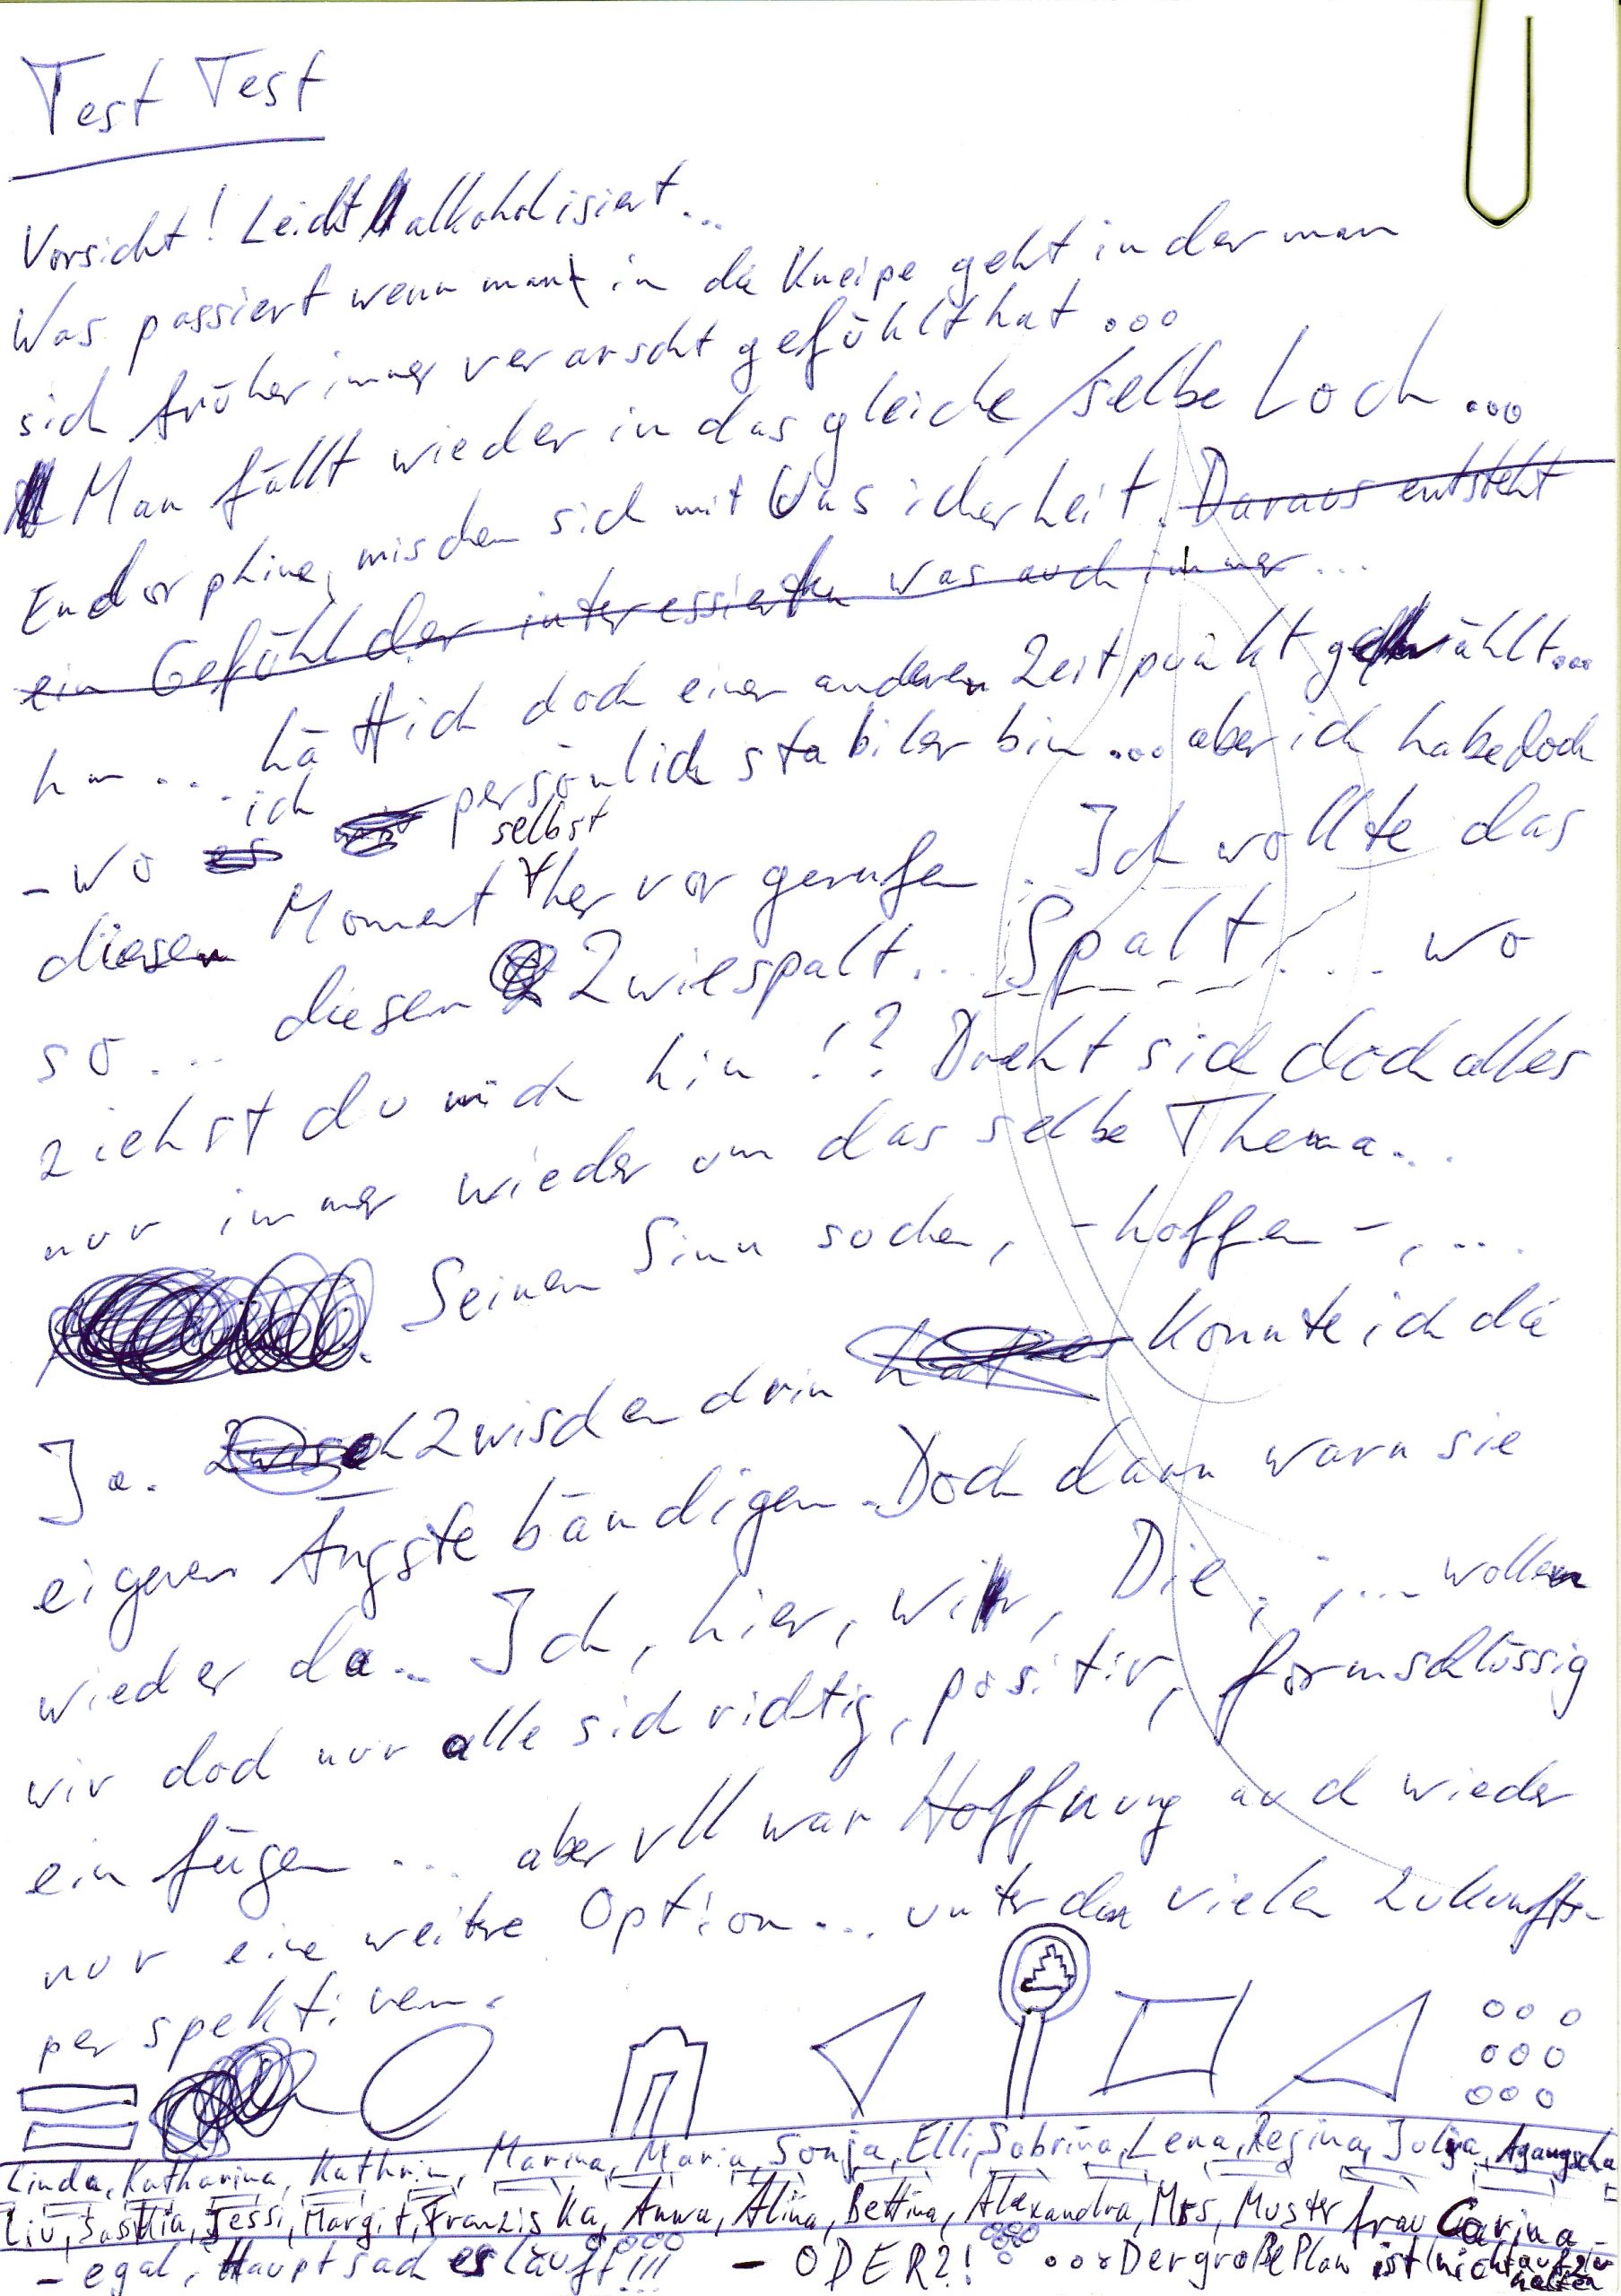 Test Test
Vorsicht! Leicht alkoholisiert...
Was passiert wenn man in die Kneipe geht in der man
sich früher immer verarscht gefühlt hat ...
Man fällt wieder in das gleiche/selbe Loch ...
Endorphine, mischen sich mit Unsicherheit. Daraus entsteht
ein Gefühl der interessierten was auch immer...
hm... hätt ich doch einen anderen Zeitpunkt gewählt...
- wo es ich persönlich stabiler bin ... aber ich habe doch
diesen Moment selbst hervorgerufen. Ich wollte das
so ... diesen Zwiespalt... Spalt!... wo
ziehst du mich hin!? Dreht sich doch alles
nur immer wieder um das selbe Thema...
Seinen Sinn suchen, -hoffen-, ...
Ja. Zwisch Zwischen drin hat es Konnte ich die
eigenen Ängste bändigen. Doch dann warn sie
wieder da... Ich, hier, wir, Die, ,... wollen
wir doch nur alle sich richtig, positiv, formschlüssig
einfügen ... aber vll war Hoffnung auch wieder
nur eine weitere Option... unter den vielen Zukunfts-
perspektiven.
Linda, Katharina, Kathrin, Marina, Maria, Sonja, Elli, Sabrina, Lena, Regina, Julia,
Liv, Saskia, Jessi, Margit, Franziska, Anna, Alina, Bettina, Alexandra, Mrs, Muster frau Carina
- egal, Hauptsach es läuft!!! - ODER?! ...Der große Plan ist nicht aufzuhalten